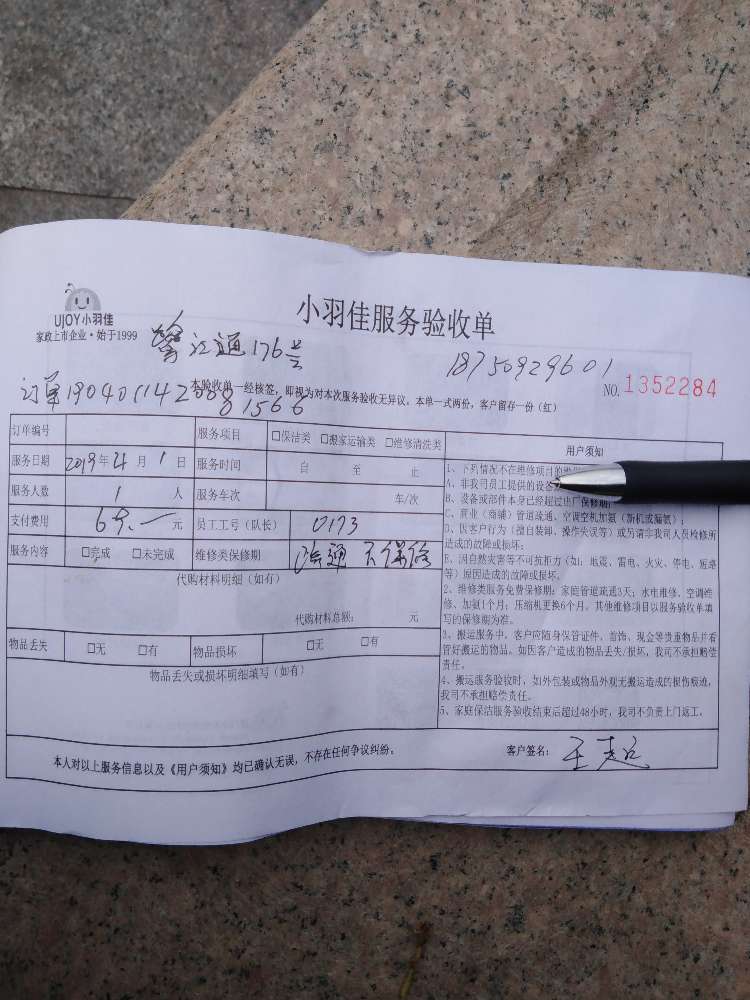 UJOY小羽佳
家政上市企业·始于1999
小羽佳服务验收单
江通176号
18750929601
NO.1352284
订单19040114208
81566
本验收单一经核签,即视为对本次服务验收无异议。本单一式两份,客户留存一份(红)
订单编号 服务项目 □保洁类 □搬家运输类 □维修清洗类
服务日期 2019年4月1日 服务时间 自 至 止
服务人数 1人 服务车次 车/次
支付费用 元 员工工号(队长) 0173
服务内容 □完成 □未完成 维修类保修期 疏通 不保修
代购材料明细(如有)
代购材料总额: 元
物品丢失 □无 □有 物品损坏 □无 □有
物品丢失或损坏明细填写(如有)
用户须知
1、下列情况不在维修项目的
A、非我司员工提供的设备
B、设备或部件本身已经超过出厂保修期;
C、商业(商铺)管道疏通、空调空机加氨(新机或漏氨);
D、因客户行为(擅自装卸、操作失误等)或另请非我司人员检修所
造成的故障或损坏;
E、因自然灾害等不可抗拒力(如:地震、雷电、火灾、停电、短路
等)原因造成的故障或损坏。
2、维修类服务免费保修期:家庭管道疏通3天;水电维修、空调维
修、加氨1个月;压缩机更换6个月。其他维修项目以服务验收单填
写的保修期为准。
3、搬运服务中,客户应随身保管证件、首饰、现金等贵重物品并看
管好搬运的物品。如因客户造成的物品丢失/损坏,我司不承担赔偿
责任。
4、搬运服务验收时,如外包装或物品外观无搬运造成的损伤痕迹,
我司不承担赔偿责任。
5、家庭保洁服务验收结束后超过48小时,我司不负责上门返工。
本人对以上服务信息以及《用户须知》均已确认无误,不存在任何争议纠纷。 客户签名: 王